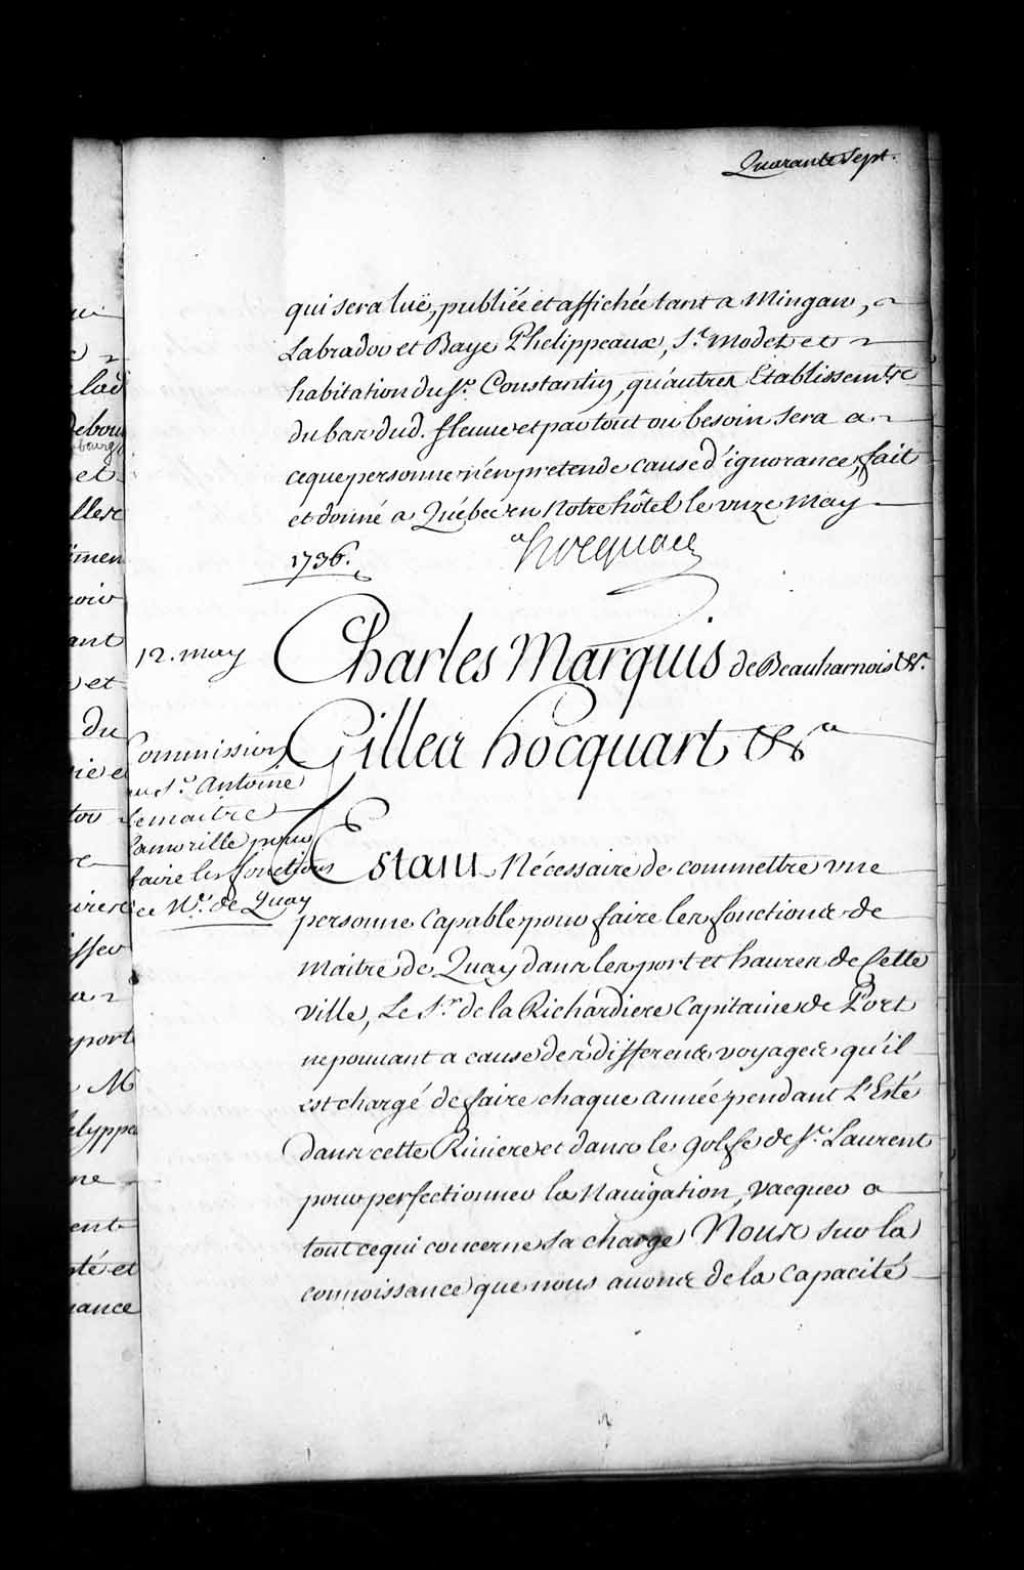 Quarante Sept.
qui sera luë, publiée et affichée tant a Mingan,
Labrador et Baye Phelippeaux, St. Modet et
habitation du Sr. Constantin, qu'autres Etablissemts.
du bas dud. fleuve et partout ou besoin sera a
ce que personne n'en pretende cause d'ignorance, fait
et donné a Québec en Notre hôtel le onze May
1736. hocquart
12. may
Charles Marquis de Beauharnois &c.
Gilles hocquart &ca
Commission
au Sr. Antoine
Lemaitre
Lamorille pour
faire les fonctions
de Me. de Quay
Estant Nécessaire de commettre une
personne Capable pour faire les fonctions de
Maitre de Quay dans les port et havres de Cette
ville, Le Sr. de la Richardiere Capitaine de Port
ne pouvant a cause des differens voyages qu'il
est chargé de faire chaque année pendant L'Esté
dans cette Riviere et dans le golfe de St. Laurent
pour perfectionner la Navigation, vacquer a
tout ce qui concerne sa charge Nous sur la
connoissance que nous avons de la Capacité